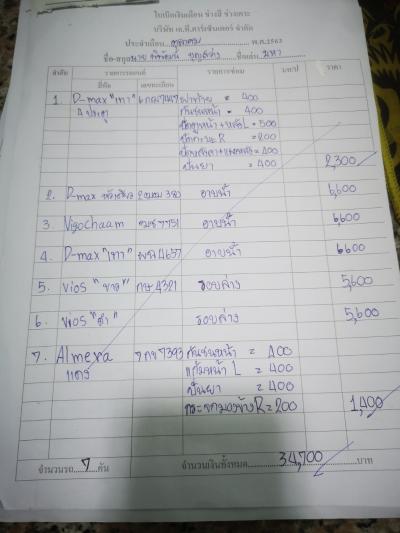 ใบเบิกเงินเดือน ช่างสี ช่างเคาะ
บริษัท เค.ที.คาร์เซ็นเตอร์ จำกัด
ประจำเดือน ตุลาคม พ.ศ.2563
ชื่อ-สกุล นาย บุญสว่าง ชื่อเล่น มหา
ลำดับ รายการรถยนต์ รายการซ่อม บทป ราคา
สีคัด เลขทะเบียน
1. D-max "เทา" 6กฌ7447 ฝาท้าย = 400
4 ประตู กันชนหน้า = 400
ประตูหน้า+หลังL = 500
R = 200
= 400
ปั้นยา = 400 2,300
2. D-max 2ฒฌ 380 อาบน้ำ 6,600
3 Vigochaam 7751 อาบน้ำ 6,600
4. D-max "เทา" 4657 อาบน้ำ 6600
5. Vios "ขาว" กษ 4321 รอบล่าง 5,600
6. Vios "ดำ" รอบล่าง 5,600
7. Almera 7กข7393 กันชนหน้า = 400
แดง แก้มหน้า L = 400
ปั้นยา = 400
กระจกมองข้างR = 200 1,400
จำนวนรถ 7 คัน จำนวนเงินทั้งหมด 34,700 บาท